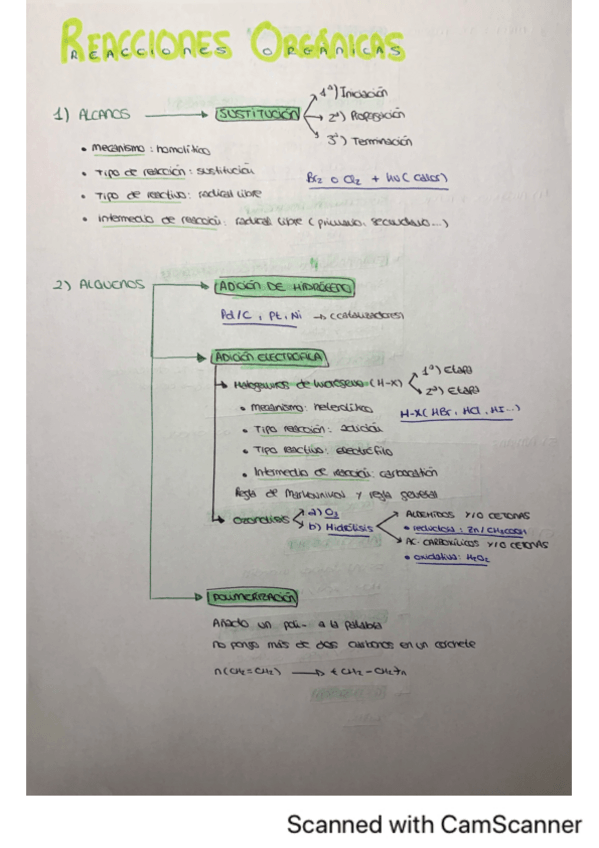 REACCIONES ORGÁNICAS
REACCIONES ORGÁNICAS
1) ALCANOS → SUSTITUCIÓN
1ª) Iniciación
2ª) Propagación
3ª) Terminación
• mecanismo: homolítico
• Tipo de reacción: sustitución
Br₂ o Cl₂ + hν (calor)
• Tipo de reactivo: radical libre
• Intermedio de reacción: radical libre (primario, secundario...)
2) ALQUENOS → ADICIÓN DE HIDRÓGENO
Pd/C, Pt, Ni → (catalizadores)
ADICIÓN ELECTRÓFILA
Halogenuros de hidrógeno (H-X)
1ª) Etapa
2ª) Etapa
• mecanismo: heterolítico
H-X (HBr, HCl, HI...)
• Tipo reacción: adición
• Tipo reactivo: electrófilo
• Intermedio de reacción: carbocatión
Regla de Markovnikov y regla general
Ozonólisis
a) O₃
b) Hidrólisis
ALDEHIDOS Y/O CETONAS
• reductora: Zn/CH₃COOH
AC. CARBOXÍLICOS Y/O CETONAS
• oxidativa: H₂O₂
POLIMERIZACIÓN
Añado un poli- a la palabra
no pongo más de dos carbonos en un corchete
n(CH₂=CH₂) → (CH₂-CH₂)n
Scanned with CamScanner